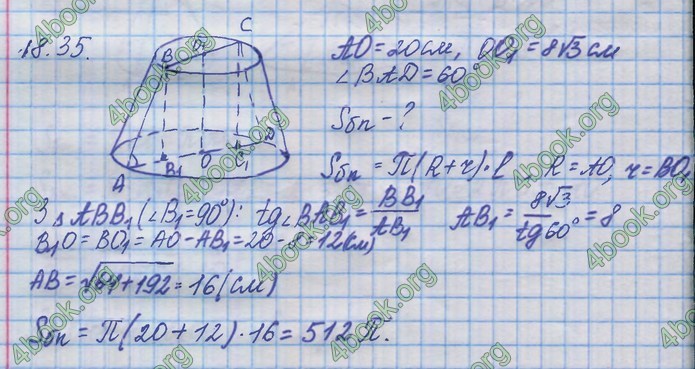 18.35.
AO = 20 см, OO₁ = 8√3 см
∠BAD = 60°
Sбп - ?
Sбп = П(R + r) · l R = AO, r = BO₁
З △ABB₁ (∠B₁ = 90°): tg∠BAB₁ = BB₁/AB₁ AB₁ = 8√3/tg60° = 8
B₁O = BO₁ = AO - AB₁ = 20 - 8 = 12(см)
AB = √64 + 192 = 16 (см)
Sбп = П(20 + 12) · 16 = 512 П.
A
B
C
D
O₁
B₁
O
C₁
4book.org